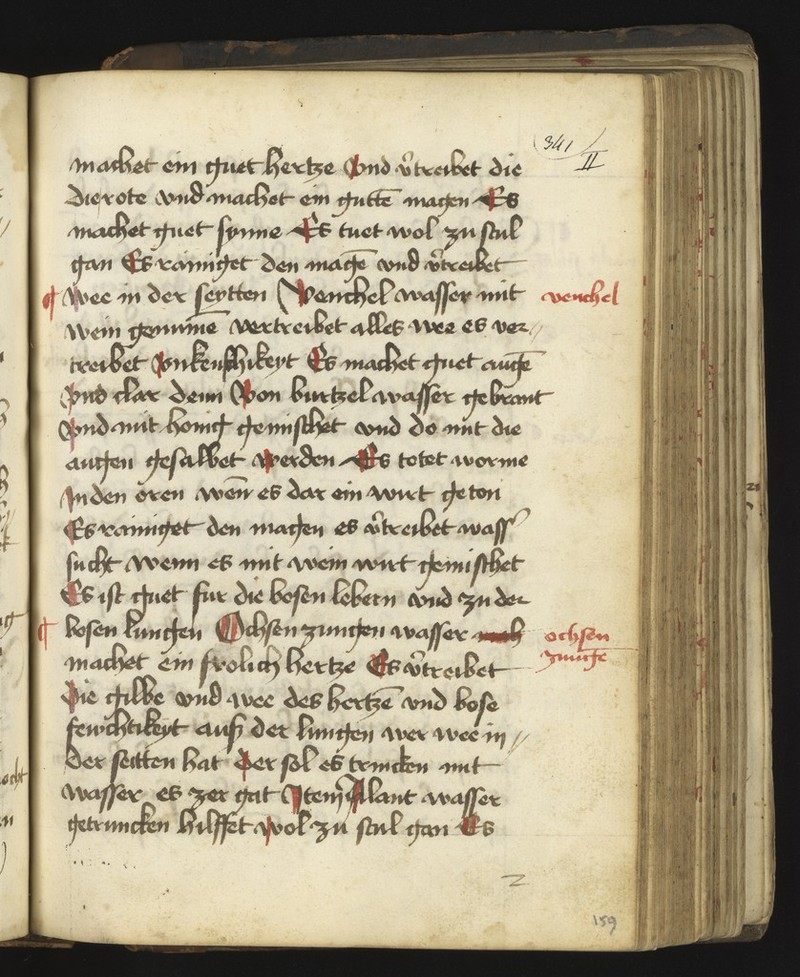 341/II
machet ein guet hertze Vnd v̾treibet die
die rote vnd machet ein gutt̄e magen Es
machet guet synne Es tuet wol zu stul
gan Es rainiget den maḡe vnd v̾treibet
¶ wee in der seytten Venchel wasser mit
venchel
wein genūmē vertreibet alles wee es ver⸗
treibet Vnkeushikeyt Es machet guet auḡe
Vnd clar denn Von burtzel wasser gebrant
Vnd mit honig gemischet vnd do mit die
augen gesalbet werden Es totet worme
In den oren wen̄ es dar ein wirt geton
Es rainiget den magen es v̾treibet wass̾
sucht wenn es mit wein wirt gemischet
Es ist guet fur die bosen lebern vnd zu der
¶ bosen lungen Ochsen zungen wasser
ochsen
zunḡe
machet ein frolich hertze Es v̾treibet
Die gilbe vnd wee des hertzē vnd bose
fewchtikeyt auß der lungen wer wee in⸗
der seitten hat Der sol es trincken mit
wasser es zer gat Item Alant wasser
getruncken hilffet wol zu stul gan Es
2
159